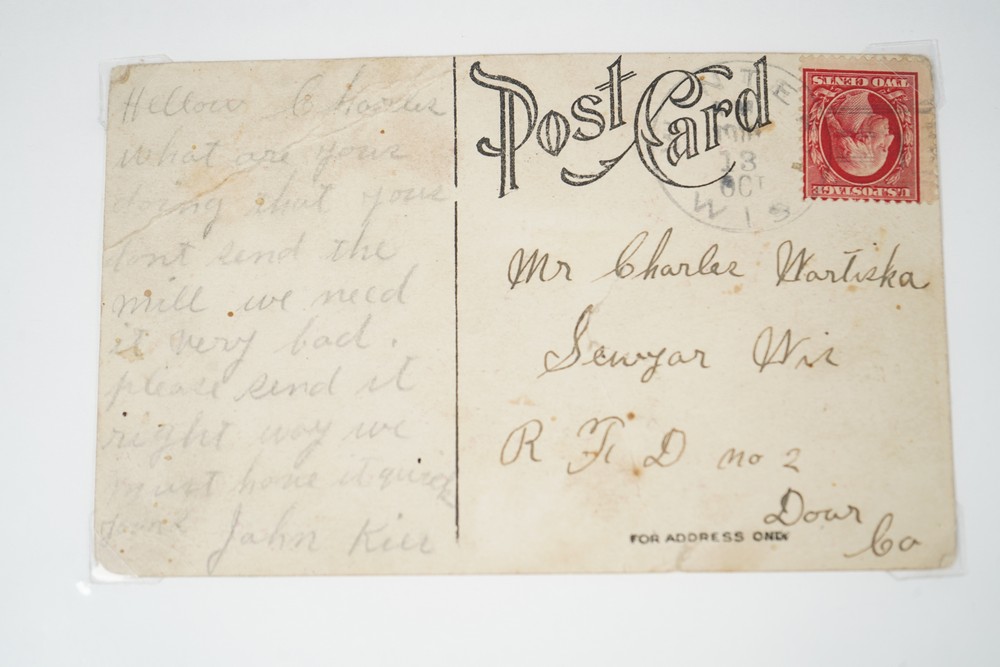 Hellow Charles
what are yous
doing that yous
dont send the
mill we need
it very bad.
please send it
right way we
must have it quick
yours John Kier
Post Card
WIS
13
OCT
TWO CENTS
U.S. POSTAGE
Mr Charles Wartiska
Sewyar Wis
R F D no 2
Dour
Co
FOR ADDRESS ONLY